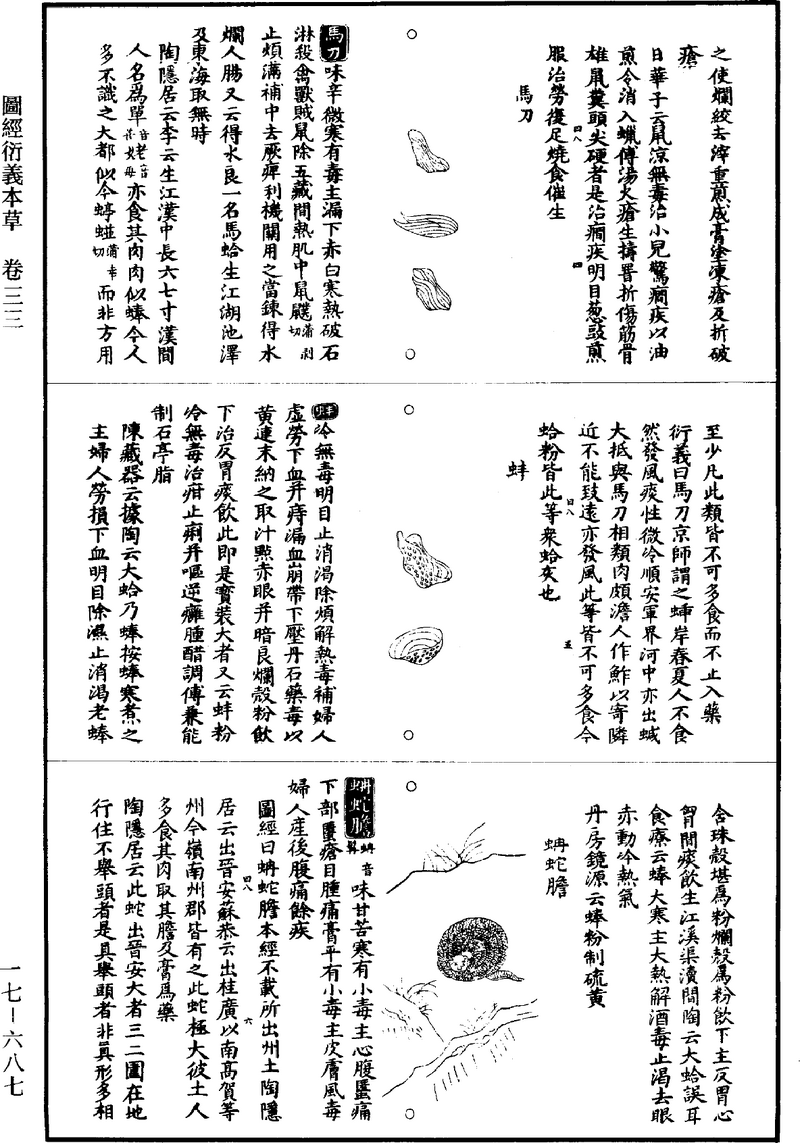 之使爛絞去滓重煎成膏塗凍瘡及折破
瘡
日華子云鼠涼無毒治小兒驚癇疾以油
煎令消入蠟傅湯火瘡生擣罯折傷筋骨
雄鼠糞頭尖硬者是治癇疾明目葱豉煎
服治勞復足燒食催生
馬刀
馬刀味辛微寒有毒主漏下赤白寒熱破石
淋殺禽獸賊鼠除五藏間熱肌中鼠䑕蒲剥切
止煩滿補中去厥痹利機關用之當鍊得水
爛人腸又云得水良一名馬蛤生江湖池澤
及東海取無時
陶隱居云李云生江漢中長六七寸漢間
人名爲單音善姥音母亦食其肉肉似蜯今人
多不識之大都似今蝏䗒蒲幸切而非方用
至少凡此類皆不可多食而不止入藥
衍義曰馬刀京師謂之𧍧岸春夏人不食
然發風痰性微冷順安軍界河中亦出蜮
大抵與馬刀相類肉頗澹人作鮓以寄隣
近不能致遠亦發風此等皆不可多食今
蛤粉皆此等衆蛤灰也
蚌
蚌冷無毒明目止消渴除煩解熱毒補婦人
虛勞下血并痔漏血崩帶下壓丹石藥毒以
黄連末納之取汁點赤眼并暗良爛殻粉飲
下治反胃痰飲此即是寳裝大者又云蚌粉
冷無毒治疳止痢并嘔逆癰腫醋調傅兼能
制石亭脂
陳藏器云據陶云大蛤乃蜯按蜯寒煮之
主婦人勞損下血明目除濕止消渴老蜯
含珠殻堪爲粉爛殻爲粉飲下主反胃心
胷間痰飲生江溪渠瀆間陶云大蛤誤耳
食療云蜯大寒主大熱解酒毒止渴去眼
赤動冷熱氣
丹房鏡源云蜯粉制硫黄
蚺蛇膽
蚺蛇膽蚺音髯味甘苦寒有小毒主心腹䘌痛
下部䘌瘡目腫痛膏平有小毒主皮膚風毒
婦人産後腹痛餘疾
圖經曰蚺蛇膽本經不載所出州土陶隱
居云出晉安蘇恭云出桂廣以南高賀等
州今嶺南州郡皆有之此蛇極大彼土人
多食其肉取其膽及膏爲藥
陶隱居云此蛇出晉安大者三二圍在地
行住不舉頭者是真舉頭者非真形多相
圖經衍義本草　卷三三
一七－六八七